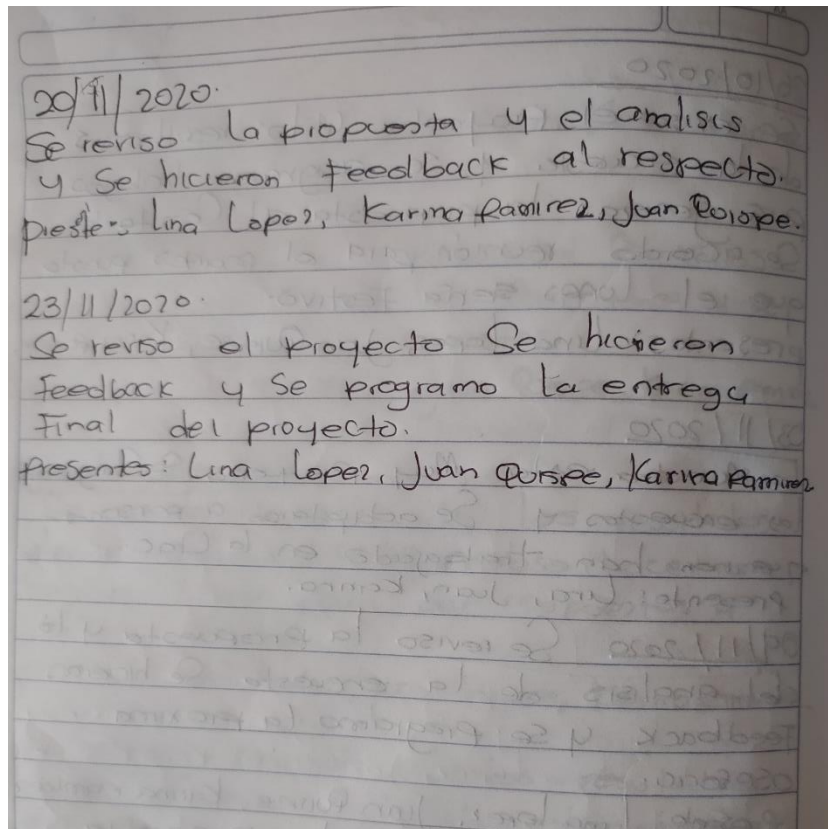 20/11/2020.
Se reviso la propuesta y el analisis
y Se hicieron feedback al respecto.
Lina Lopez, Karina Ramirez, Juan
23/11/2020.
Se reviso el proyecto Se hicieron
feedback y Se programo la entrega
Final del proyecto.
Presentes: Lina Lopez, Juan Quispe, Karina Ramirez